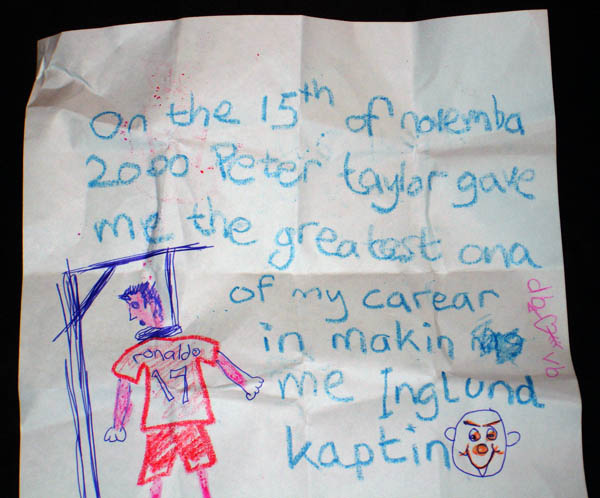 On the 15th of novemba
2000 Peter taylor gave
me the greatest ona
of my carear
in makin
me Inglund
kaptin
ronaldo
17